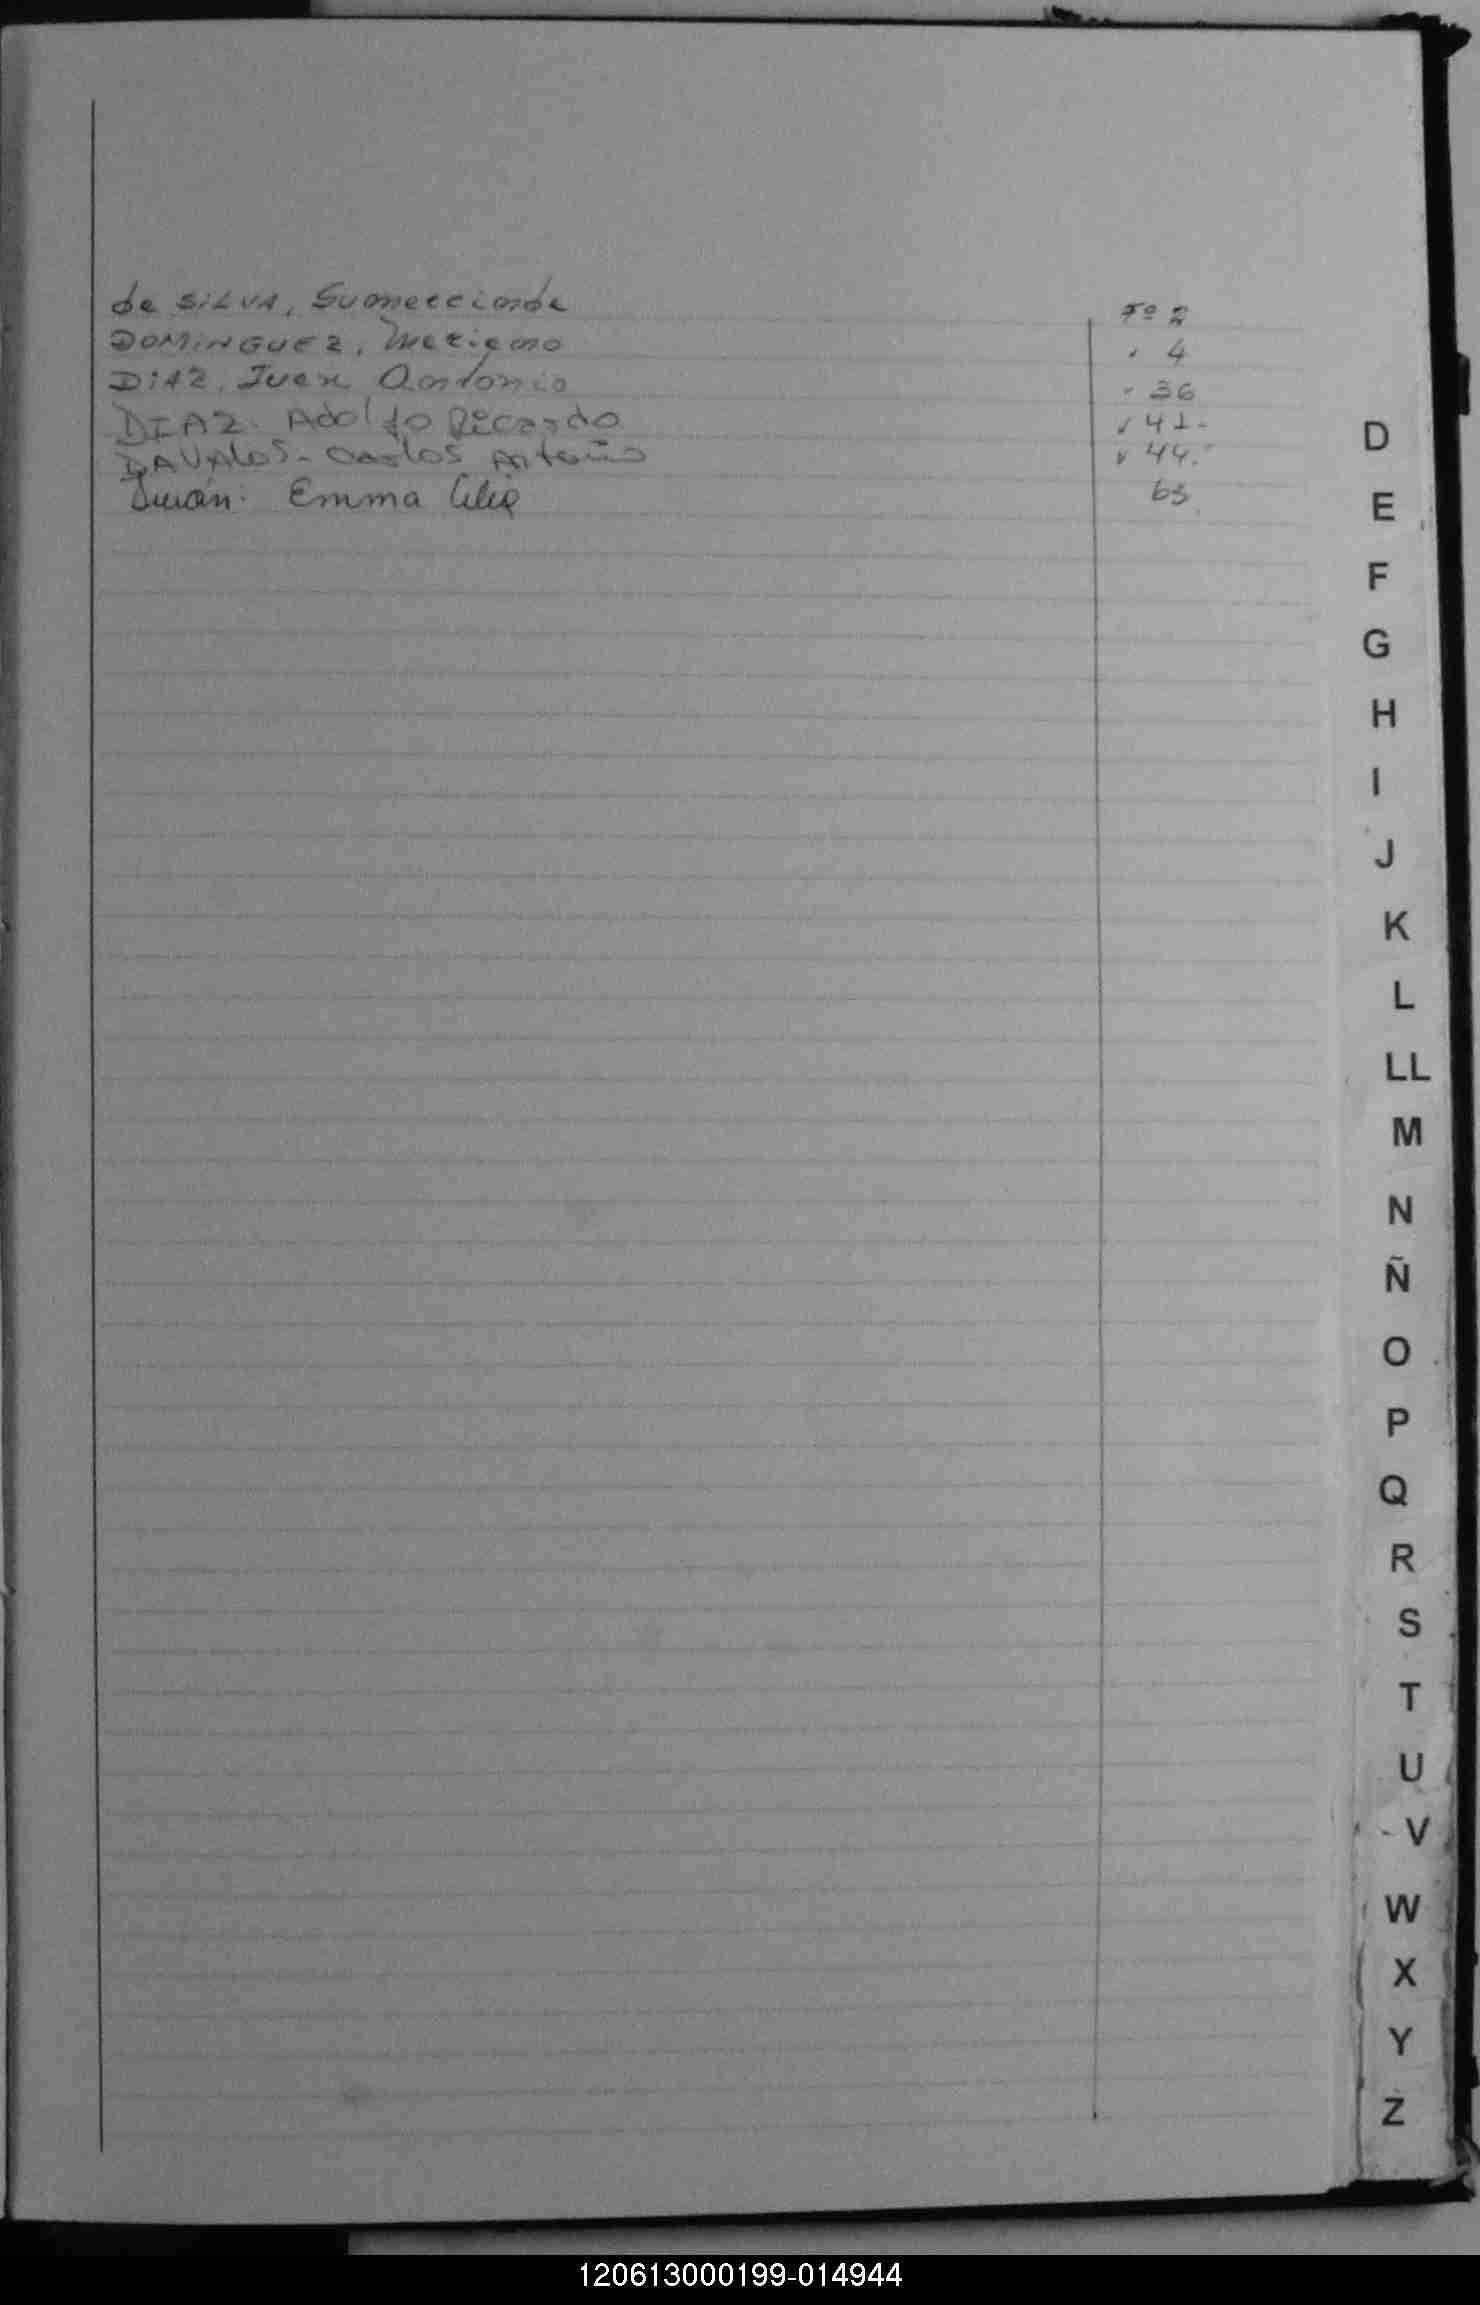 de SILVA, Gumercinda Fº 2
DOMINGUEZ, Mariano " 4
DIAZ, Juan Antonio " 36
DIAZ. Adolfo Ricardo " 41-
DAVALOS- Carlos Antonio " 44.
Durán: Emma Celia 63
D
E
F
G
H
I
J
K
L
LL
M
N
Ñ
O
P
Q
R
S
T
U
V
W
X
Y
Z
120613000199-014944